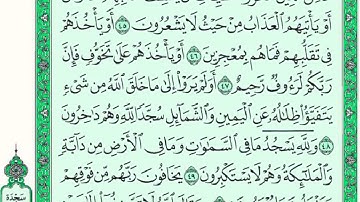 أَوْ يَأْتِيَهُمُ ٱلْعَذَابُ مِنْ حَيْثُ لَا يَشْعُرُونَ ٤٥ أَوْ يَأْخُذَهُمْ
فِي تَقَلُّبِهِمْ فَمَا هُم بِمُعْجِزِينَ ٤٦ أَوْ يَأْخُذَهُمْ عَلَىٰ تَخَوُّفٍ فَإِنَّ
رَبَّكُمْ لَرَءُوفٌ رَّحِيمٌ ٤٧ أَوَلَمْ يَرَوْا۟ إِلَىٰ مَا خَلَقَ ٱللَّهُ مِن شَىْءٍ
يَتَفَيَّؤُا۟ ظِلَٰلُهُۥ عَنِ ٱلْيَمِينِ وَٱلشَّمَآئِلِ سُجَّدًا لِّلَّهِ وَهُمْ دَٰخِرُونَ
٤٨ وَلِلَّهِ يَسْجُدُ مَا فِي ٱلسَّمَٰوَٰتِ وَمَا فِي ٱلْأَرْضِ مِن دَآبَّةٍ
وَٱلْمَلَٰٓئِكَةُ وَهُمْ لَا يَسْتَكْبِرُونَ ٤٩ يَخَافُونَ رَبَّهُم مِّن فَوْقِهِمْ
سَجْدَة